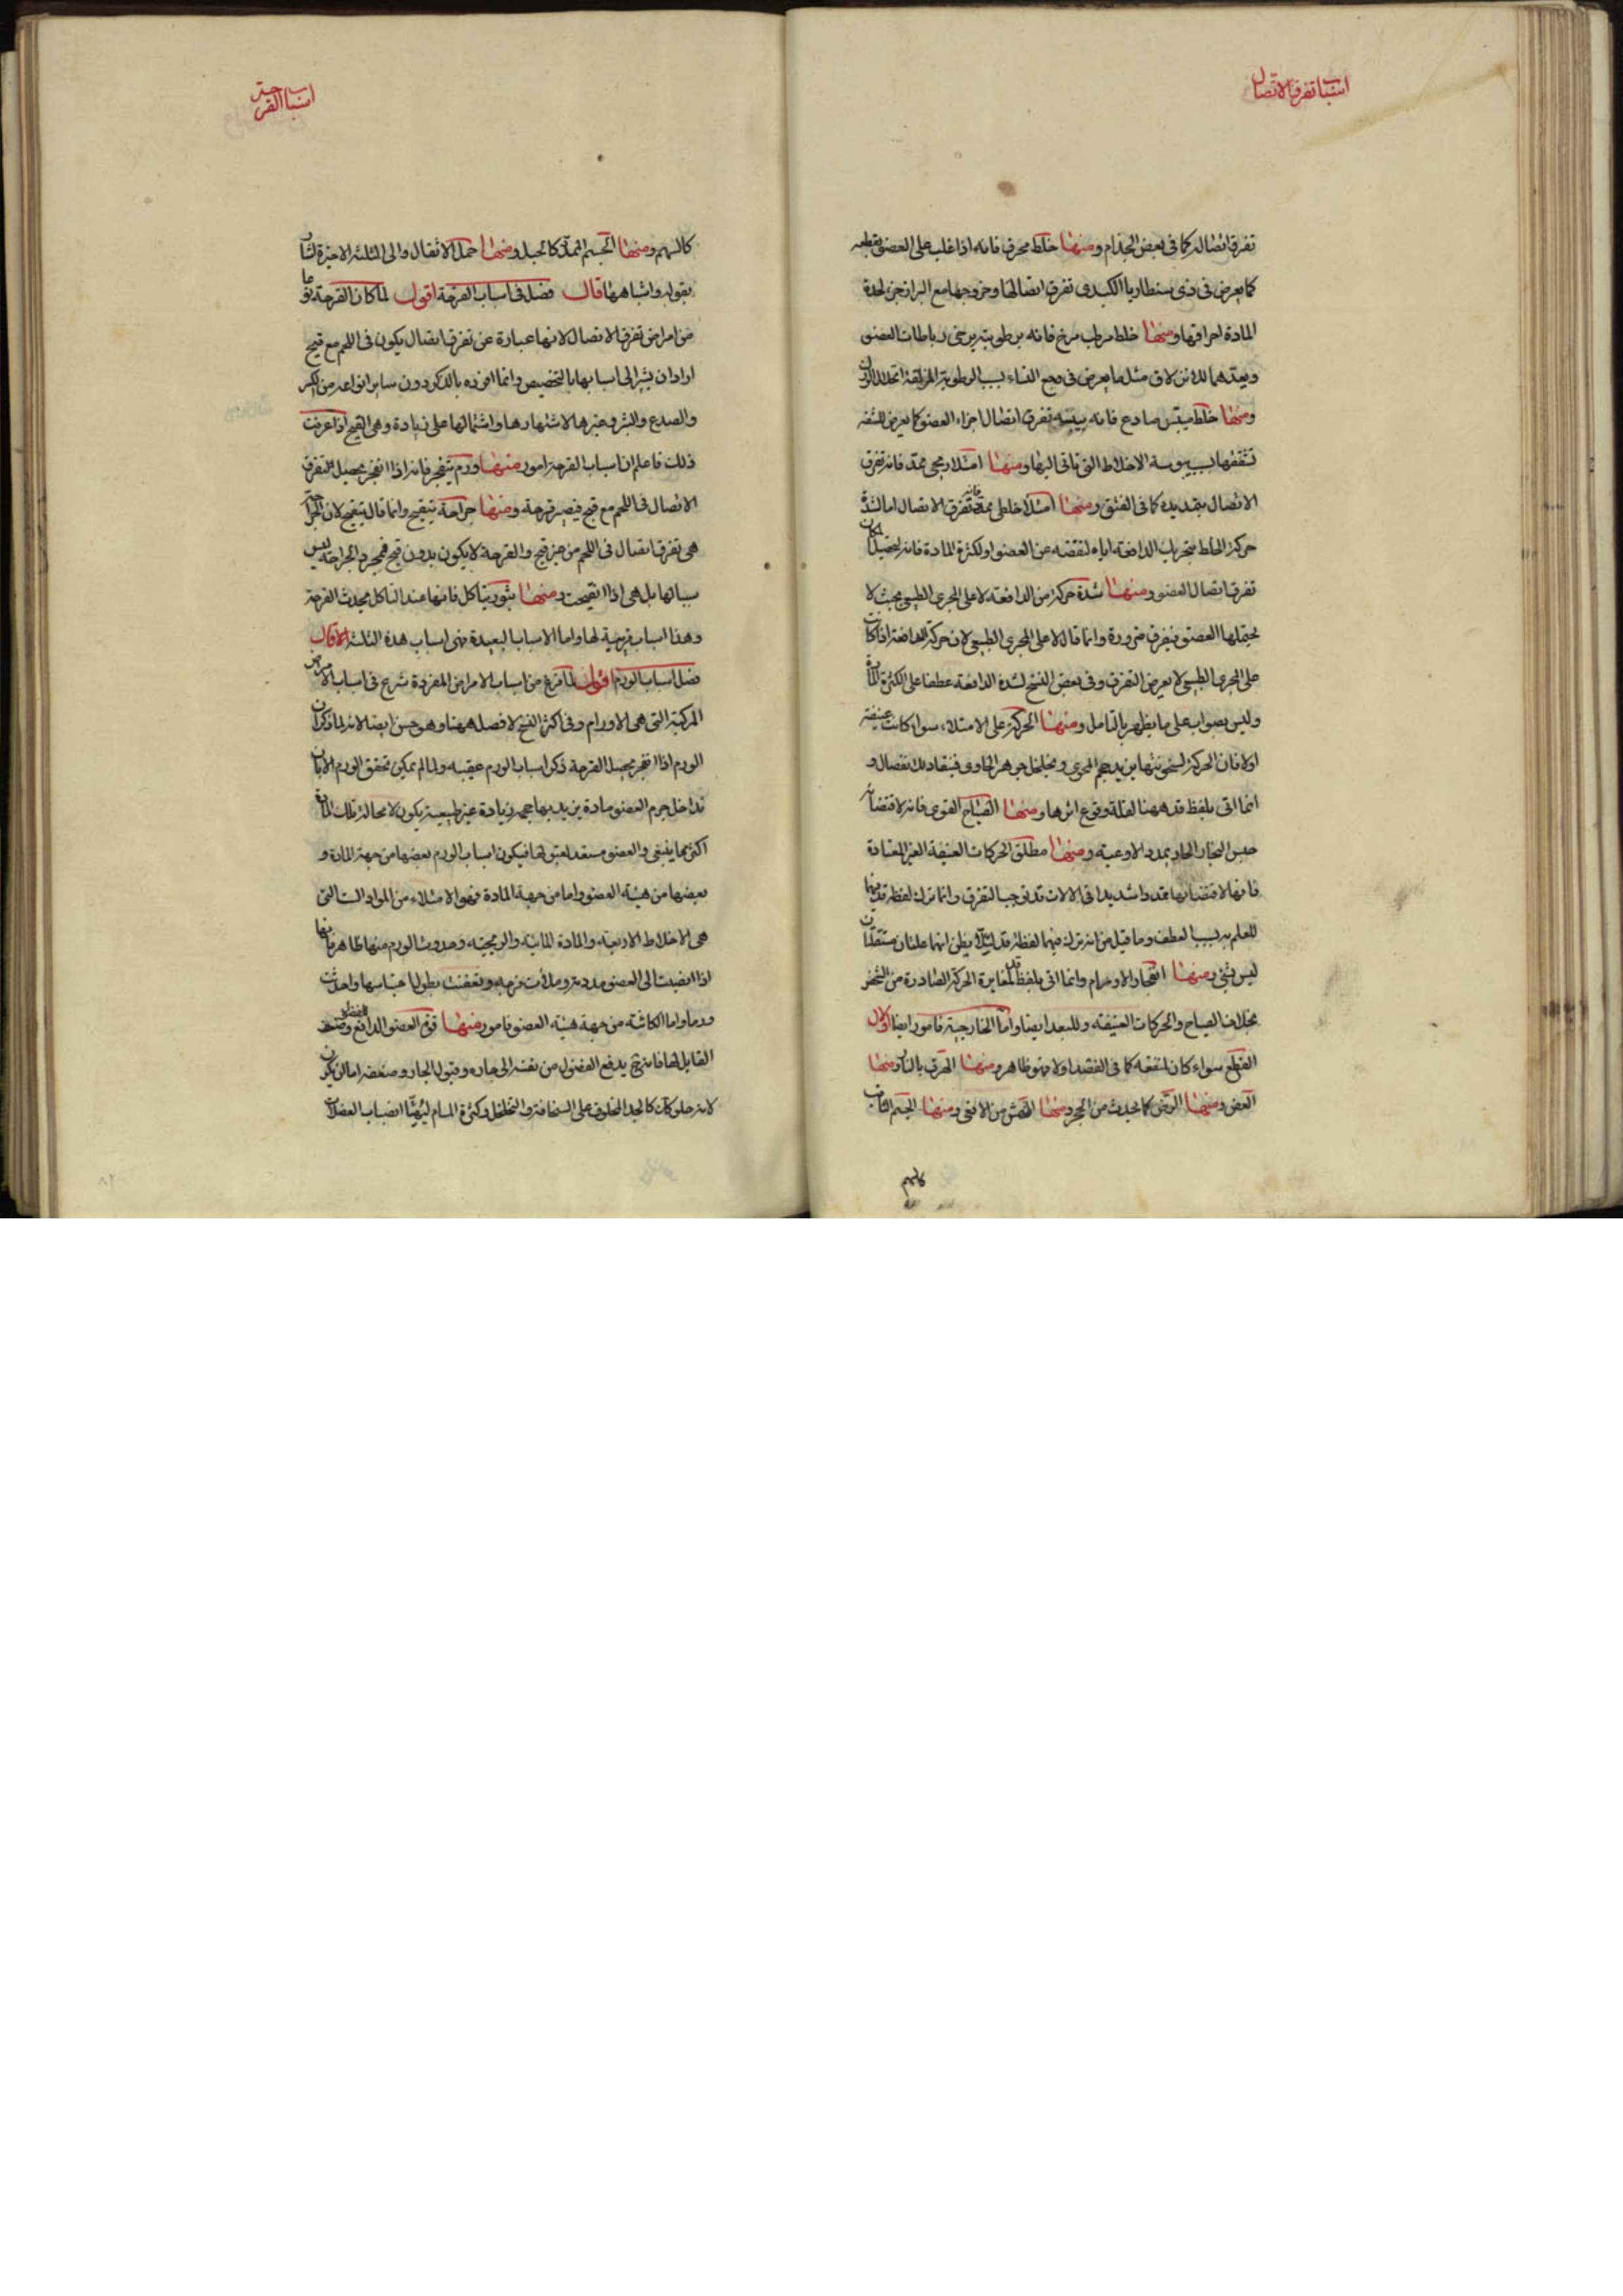 اسباب تفرق الاتصال
تفرق اتصاله كما في بعض الجذام ومنها خلط محرق فانه اذا غلب على العضو يقطعه
كما يعرض في ذوسنطاريا الكبدى تفرق اتصالها وخروجها مع البراز لحدة
المادة لحراقتها ومنها خلط مرطب مرخ فانه برطوبته يرخى رباطات العضو
ويعدهما للانزلاق مثل ما يعرض في وجع النساء بسبب الرطوبة المزلقة
ومنها خلط ميبس صادع فانه بيبسه تفرق اتصال اجزاء العضو كما يعرض للشفه
تشققها بسبب يبوسة الاخلاط التى تاتى اليها ومنها امتلاء ريحى ممدد فانه تفرق
الاتصال بتمديده كما في الفتق ومنها امتلاء خلطى ممدد فانه تفرق الاتصال اما لشدة
حركة الخلط بتحريك الدافعة اياه لنقضه عن العضو او لكثرة المادة فانه
تفرق اتصال العضو ومنها شدة حركة من الدافعة لا على المجرى الطبيعى بحيث لا
يحتملها العضو فيفرق ضرورة وانما قال لا على المجرى الطبيعى لان حركة الدافعة اذا كانت
على المجرى الطبيعى لا يعرض التفرق وفى بعض النسخ لشدة الدافعة عطفا على لكثرة المادة
وليس بصواب على ما يظهر بالتامل ومنها الحركة على الامتلاء سواء كانت عنيفة
اولا فان الحركة لسخونتها يزيد حجم المحوى ويخلخل جوهر الحاوى فينقاد للانفصال و
انما اتى بلفظ قد ههنا لقلة وقوع اثرها ومنها الصياح القوى فانه لاقتضائه
حبس البخار الحار يمدد الاوعية ومنها مطلق الحركات العنيفة الغير المعتادة
فانها لاقتضائها تمددا شديدا في الالات قد توجب التفرق وانما ترك لفظة قد فيها
للعلم به بسبب العطف وما قيل من انه ترك فيهما لفظة قد لئلا يظن انهما علتان مستقلتان
ليس بشئ ومنها انفجار الاورام وانما اتى بلفظ قد لمغايرة الحركة الصادرة من الشخص
بخلاف الصياح والحركات العنيفة وللبعد ايضا واما الخارجية فامور ايضا الاول
القطع سواء كان لمنفعة كما في الفصد اولا وهو ظاهر ومنها الحرق بالنار ومنها
العض ومنها الرض كما يحدث من الحجر ومنها النهش من الافعى ومنها الجسم الثاقب
كالسهم
اسباب القرحة
كالسهم ومنها الجسم الممدد كالحبل ومنها حمل الاثقال والى الثلثة الاخيرة اشار
بقوله واشباهها قال فصل في اسباب القرحة اقول لما كان القرحة نوعا
من امراض تفرق الاتصال لانها عبارة عن تفرق اتصال يكون في اللحم مع قيح
اراد ان يشير الى اسبابها بالتخصيص وانما افرده بالذكر دون ساير انواعه من الكسر
والصدع والبثر وغيرها لاشتهارها واشتمالها على زيادة وهى القيح اذا عرفت
ذلك فاعلم ان اسباب القرحة امور منها ورم ينفجر فانه اذا انفجر يحصل التفرق
الاتصال في اللحم مع قيح فيصير قرحة ومنها جراحة يتقيح وانما قال يتقيح لان الجراحة
هى تفرق اتصال في اللحم من غير قيح والقرحة لا يكون بدون قيح فمجرد الجراحة ليس
سببا لها بل هى اذا تقيحت ومنها بثور يتاكل فانها عند التاكل يحدث القرحة
وهذا اسباب قريبة لها واما الاسباب البعيدة فهى اسباب هذه الثلثة قال
فصل اسباب الورم اقول لما فرغ من اسباب الامراض المفردة شرع في اسباب الامراض
المركبة التى هى الاورام وفى اكثر النسخ لا فصل ههنا وهو حسن ايضا لانه لما ذكر ان
الورم اذا انفجر يحصل القرحة ذكر اسباب الورم عقيبه ولما لم يمكن تحقق الورم الا بان
تداخل جرم العضو مادة يزيد بها حجمه زيادة غير طبيعية يكون لا محالة تلك المادة
اكثر مما ينبغى والعضو مستعد لقبولها فيكون اسباب الورم بعضها من جهة المادة و
بعضها من هيئة العضو واما من جهة المادة فهو الامتلاء من المواد الست التى
هى الاخلاط الاربعة والمادة المائية والريحية وحدوث الورم منها ظاهر فانها
اذا انصبت الى العضو مددته وملأت فرجه وتعفنت بطول احتباسها واحدثت
ورما واما الكائنة من جهة هيئة العضو فامور منها قوة العضو الدافع وضعف
القابل لها فانه ح يدفع الفضول من نفسه الى جاره وقبول الجار وضعفه اما لان يكون
لانه خلق كالجلد المخلوق على السخافة والتخلخل وكثرة المسام ليتهيأ انصباب الفضلات